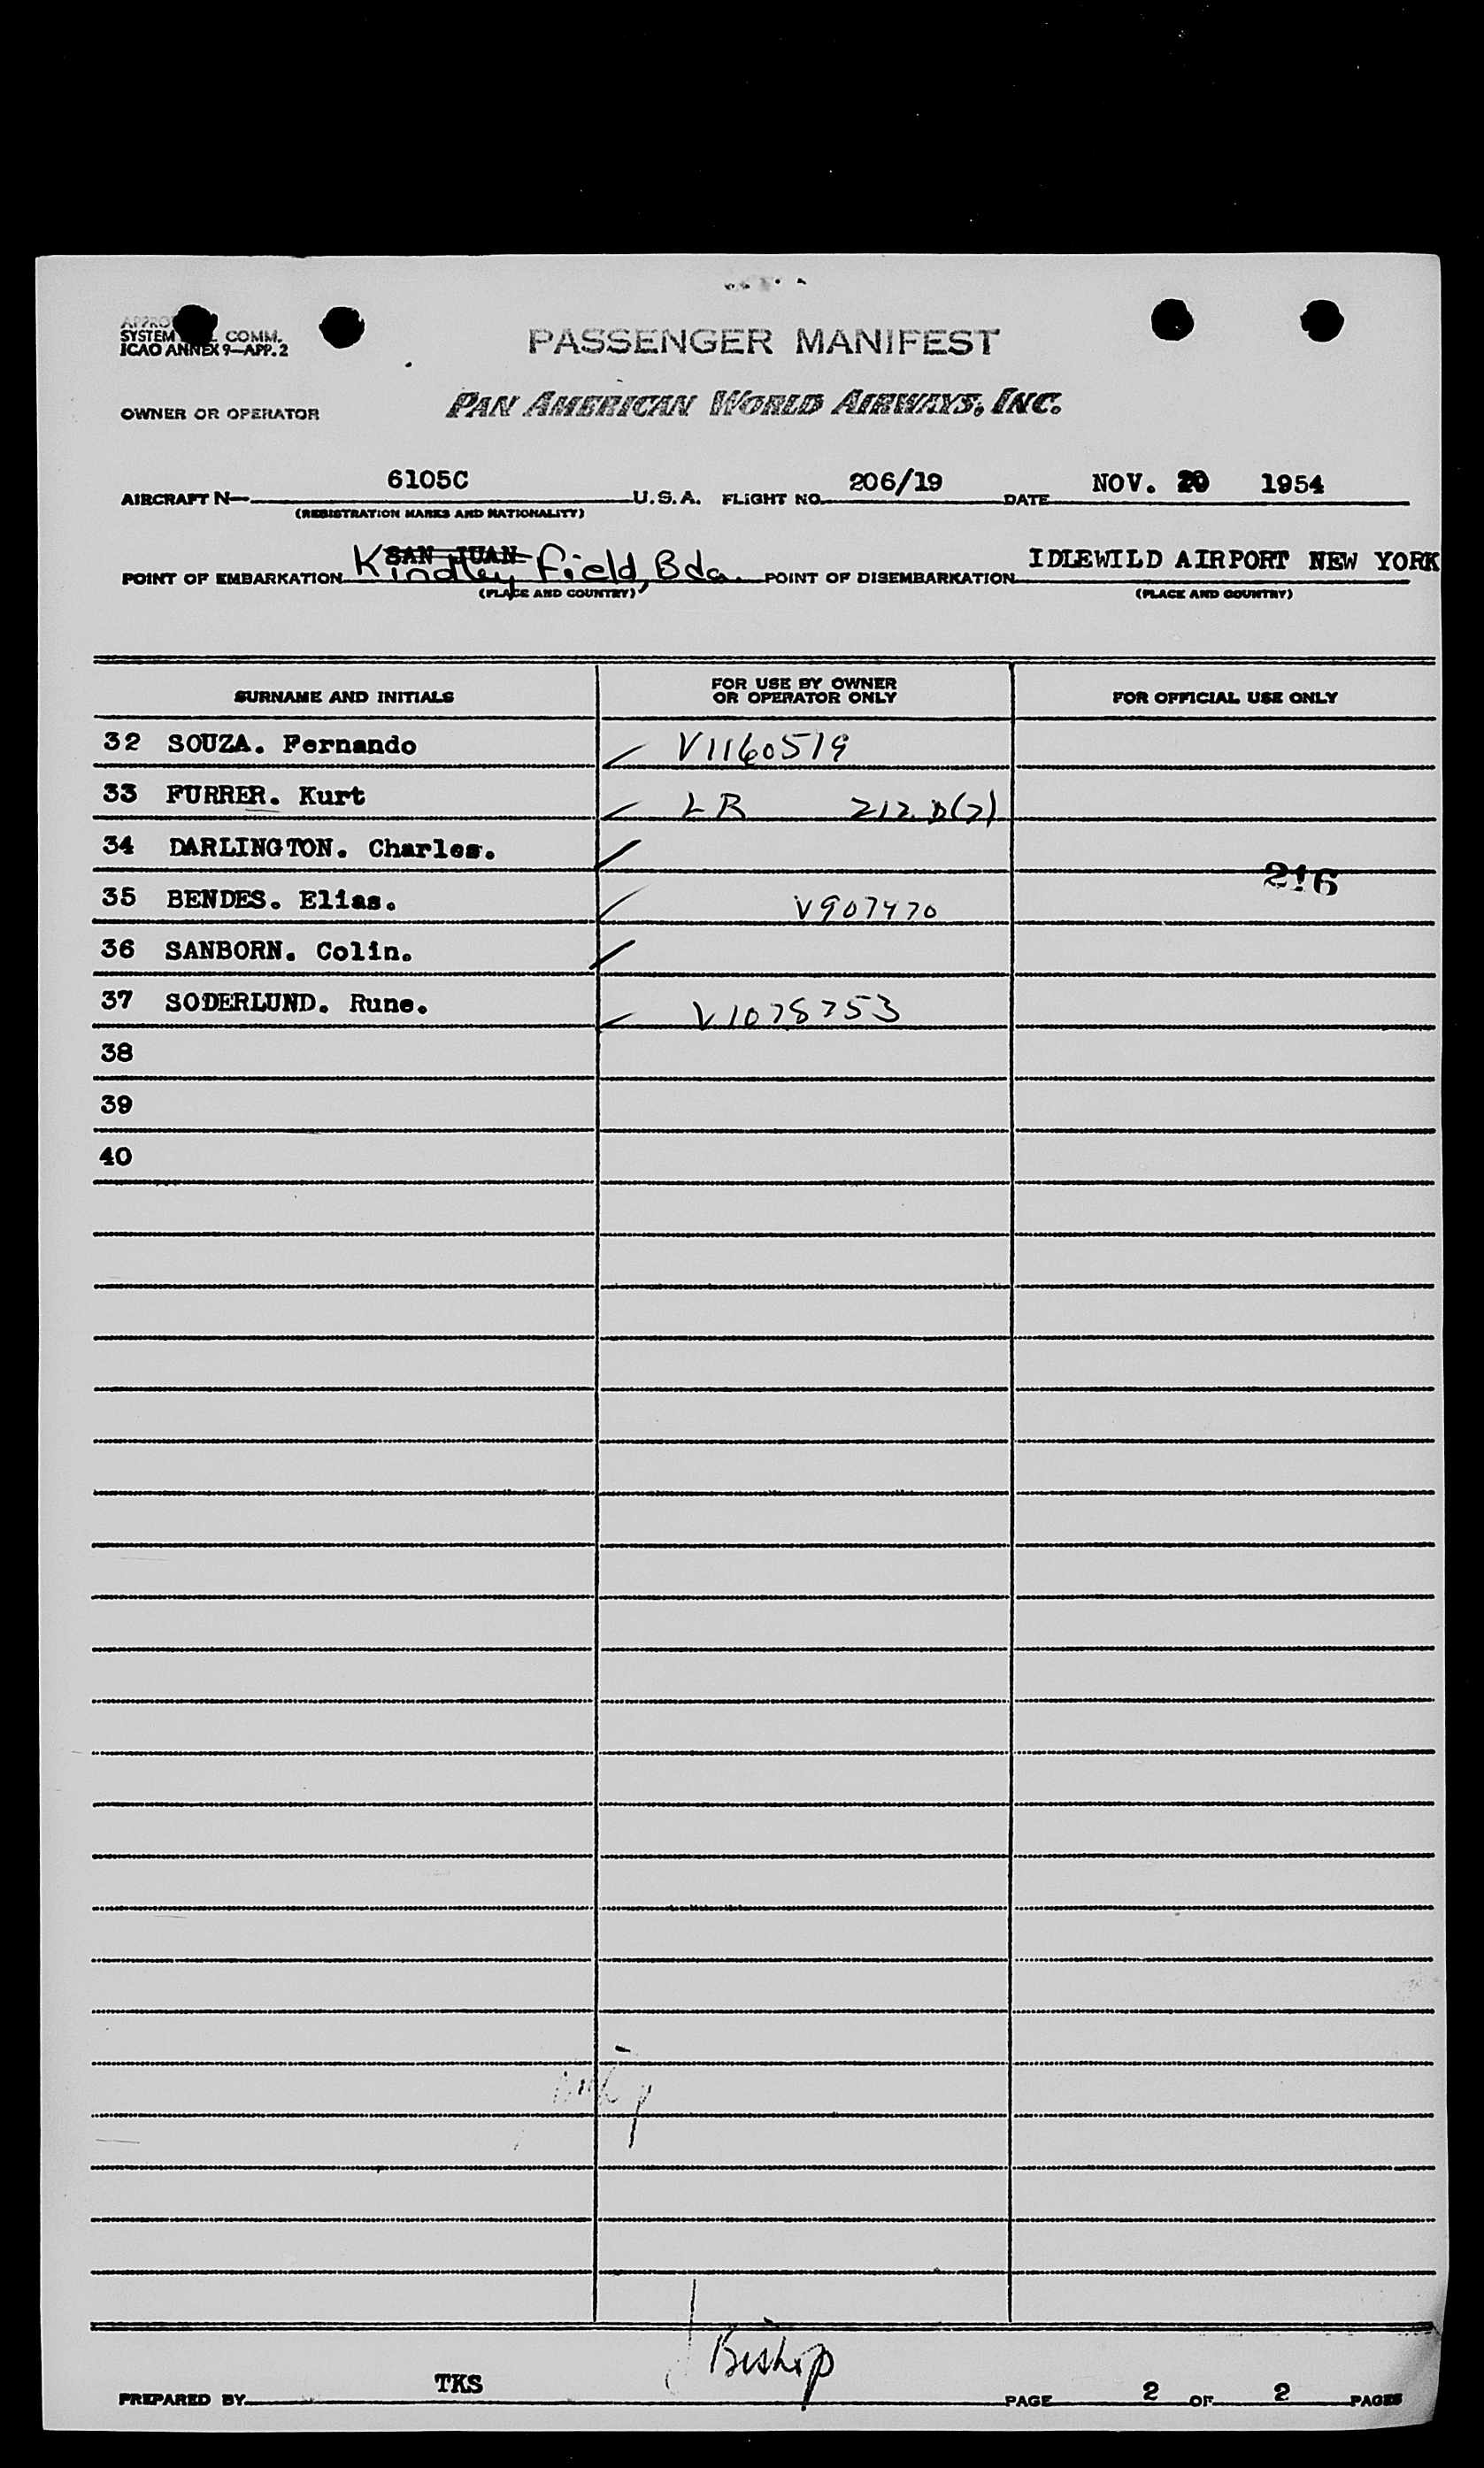 SYSTEM COMM.
ICAO ANNEX 9—APP. 2
PASSENGER MANIFEST
OWNER OR OPERATOR PAN AMERICAN WORLD AIRWAYS, INC.
AIRCRAFT N— 6105C U.S.A. FLIGHT NO. 206/19 DATE NOV. 20 1954
(REGISTRATION MARKS AND NATIONALITY)
SAN JUAN
POINT OF EMBARKATION Kindley Field, Bda. POINT OF DISEMBARKATION IDLEWILD AIRPORT NEW YORK
(PLACE AND COUNTRY) (PLACE AND COUNTRY)
SURNAME AND INITIALS FOR USE BY OWNER OR OPERATOR ONLY FOR OFFICIAL USE ONLY
32 SOUZA. Fernando ✓ V1160519
33 FURRER. Kurt ✓ LR 212.D(7)
34 DARLINGTON. Charles. ✓
216
35 BENDES. Elias. ✓ V907470
36 SANBORN. Colin. ✓
37 SODERLUND. Rune. ✓ V1078753
38
39
40
Bishop
PREPARED BY TKS PAGE 2 OF 2 PAGES